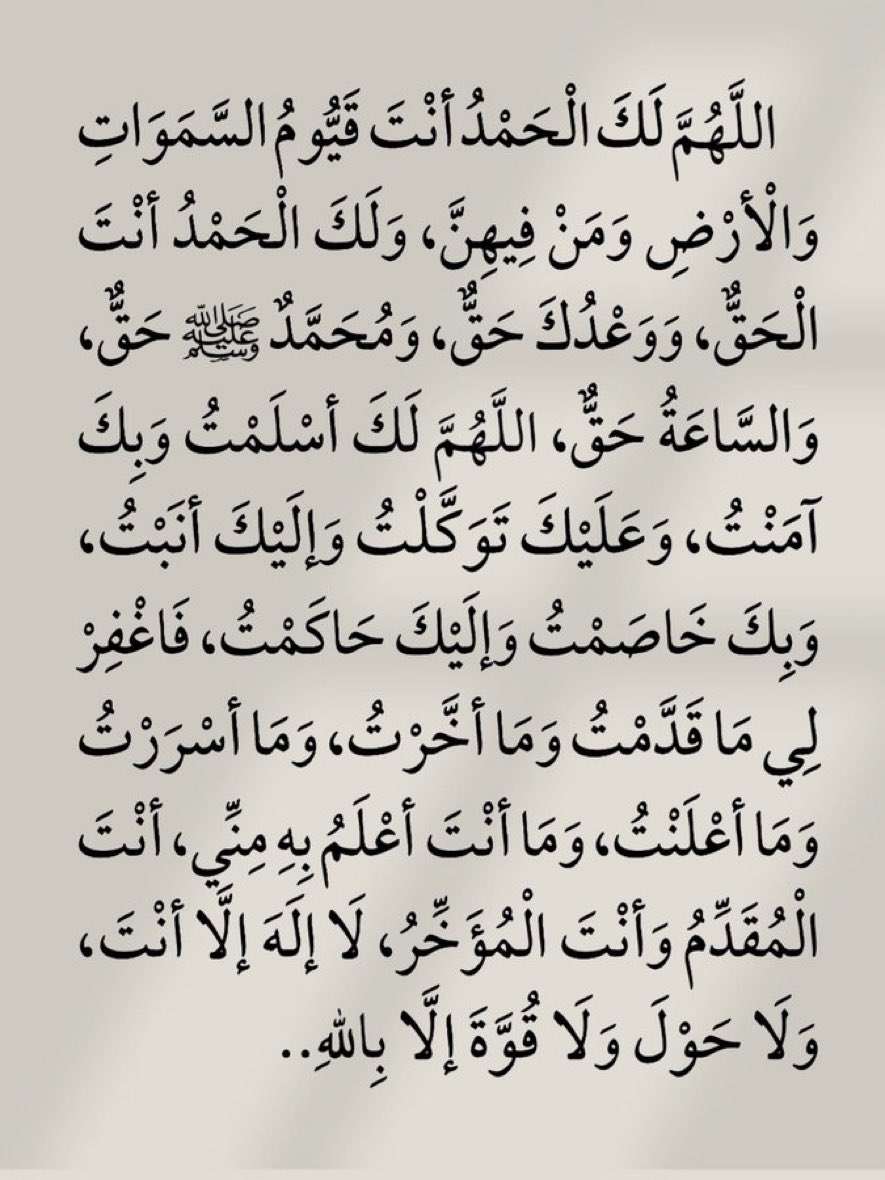 اللَّهُمَّ لَكَ الْحَمْدُ أنْتَ قَيُّومُ السَّمَوَاتِ
وَالْأرْضِ وَمَنْ فِيهِنَّ، وَلَكَ الْحَمْدُ أنْتَ
الْحَقُّ، وَوَعْدُكَ حَقٌّ، وَمُحَمَّدٌ ﷺ حَقٌّ،
وَالسَّاعَةُ حَقٌّ، اللَّهُمَّ لَكَ أسْلَمْتُ وَبِكَ
آمَنْتُ، وَعَلَيْكَ تَوَكَّلْتُ وَإلَيْكَ أنَبْتُ،
وَبِكَ خَاصَمْتُ وَإلَيْكَ حَاكَمْتُ، فَاغْفِرْ
لِي مَا قَدَّمْتُ وَمَا أخَّرْتُ، وَمَا أسْرَرْتُ
وَمَا أعْلَنْتُ، وَمَا أنْتَ أعْلَمُ بِهِ مِنِّي، أنْتَ
الْمُقَدِّمُ وَأنْتَ الْمُؤَخِّرُ، لَا إلَهَ إلَّا أنْتَ،
وَلَا حَوْلَ وَلَا قُوَّةَ إلَّا بِاللهِ..